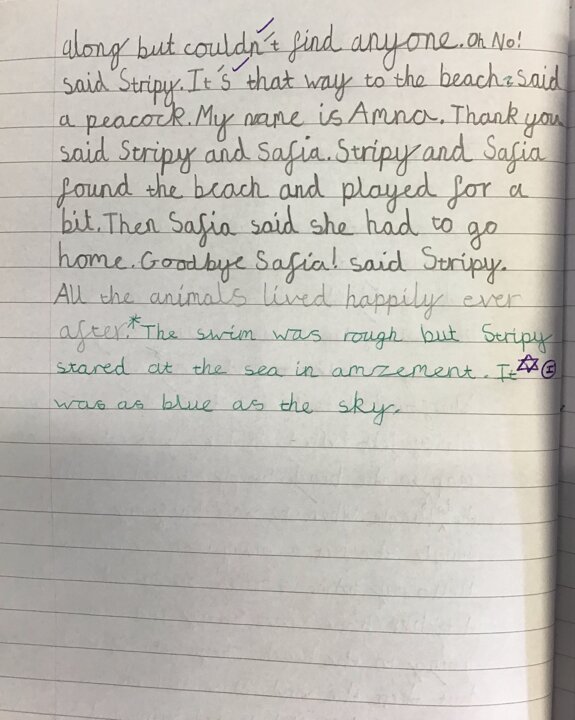 along but couldn't find anyone. Oh No!
said Stripy. It's that way to the beach said
a peacock. My name is Amna. Thank you
said Stripy and Safia. Stripy and Safia
found the beach and played for a
bit. Then Safia said she had to go
home. Goodbye Safia! said Stripy.
All the animals lived happily ever
after.* The swim was rough but Stripy
stared at the sea in amzement. It ✡ I
was as blue as the sky.